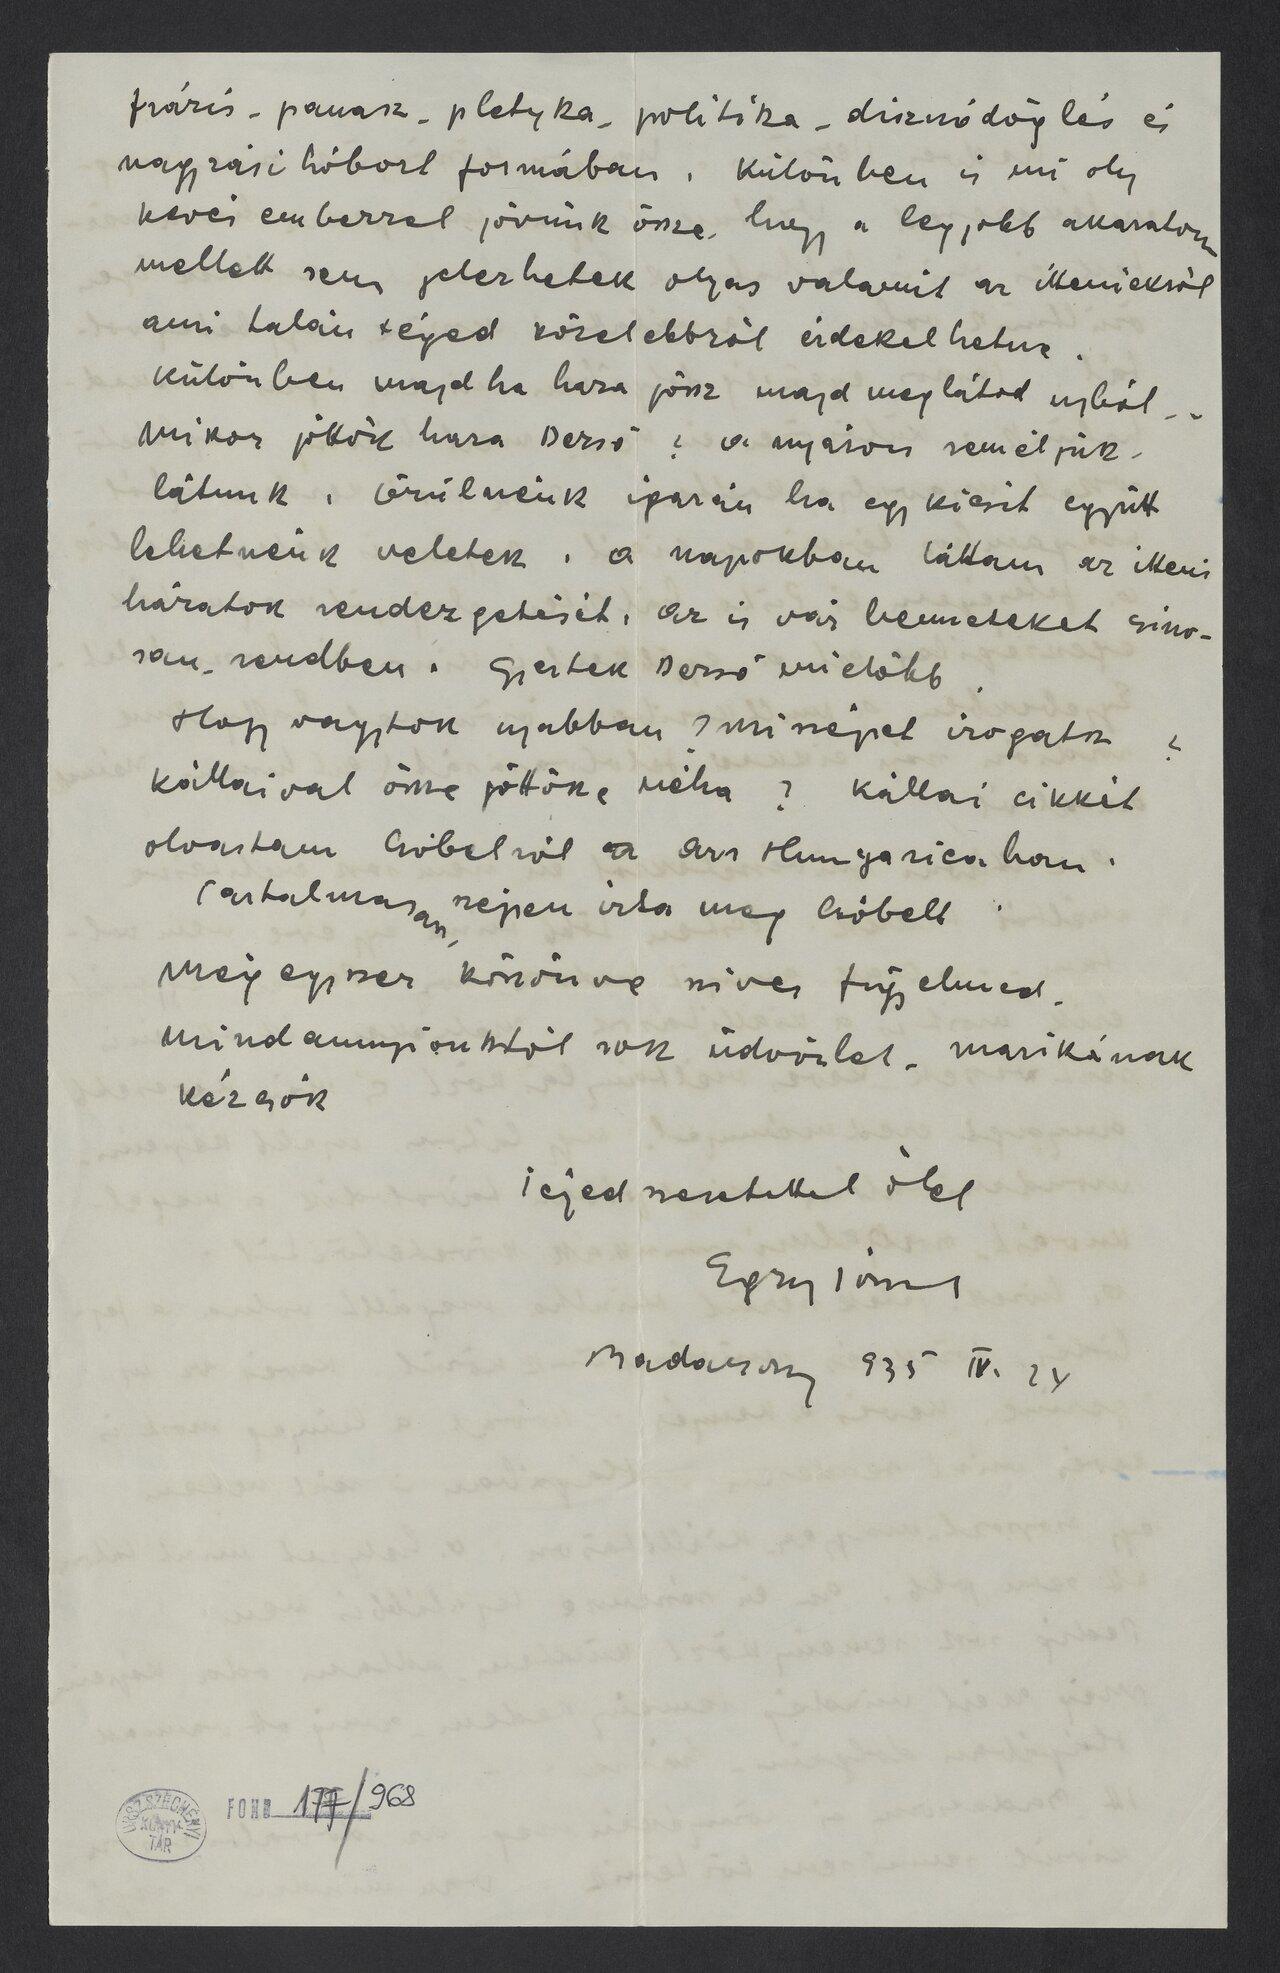 frázis - panasz - pletyka - politika - disznódöglés és
nagyzási hóbort formában. Különben is mi oly
kevés emberrel jövünk össze, hogy a legjobb akaratom
mellett sem jelezhetek olyas valamit az itteniekről
ami talán téged közelebbről érdekelhetne.
Különben majd ha haza jössz majd meglátod ujból -.
Mikor jöttök haza Dezső? a nyáron reméljük -
látunk. Örülnénk igazán ha egy kicsit együtt
lehetnénk veletek. a napokban láttam az itteni
házatok rendezgetését. az is vár benneteket csino-
san - rendben. Gyertek Dezső mielőbb.
Hogy vagytok ujabban? Mi szépet irogatsz?
Kállaival össze jöttök e néha? Kállai cikkét
olvastam Czóbelről a Ars Hungaricaban.
Tartalmasan, szépen irta meg Czóbelt.
Még egyszer köszönve szives figyelmed -
mindannyiunktól sok üdvözlet - Marikának
kézcsók
Téged szeretettel ölel
Egry József
Badacsony 935 IV. 24
ORSZ. SZÉCHÉNYI
KÖNYV-
TÁR
FOND 177/968